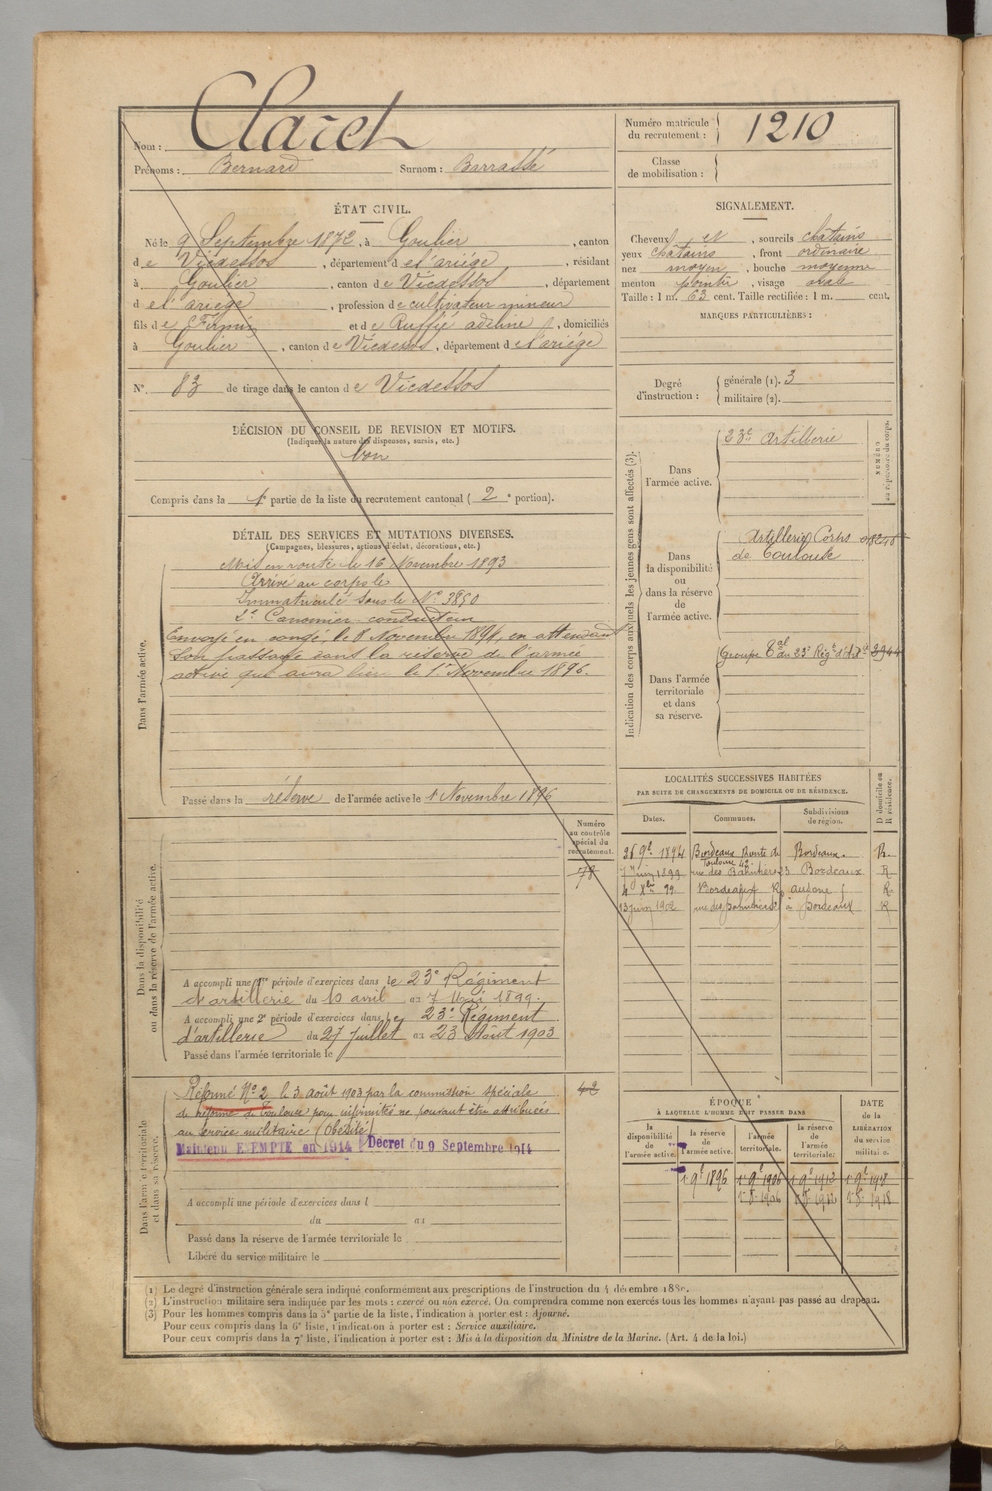 Nom : Claret
Prénoms : Bernard Surnom : Barrassé
Numéro matricule du recrutement : 1210
Classe de mobilisation :
ÉTAT CIVIL.
Né le 9 Septembre 1872, à Goulier, canton
de Vicdessos, département de l'ariége, résidant
à Goulier, canton de Vicdessos, département
de l'ariége, profession de cultivateur mineur
fils de Firmin et de Ruffié adeline, domiciliés
à Goulier, canton de Vicdessos, département de l'ariége
N° 83 de tirage dans le canton de Vicdessos
DÉCISION DU CONSEIL DE REVISION ET MOTIFS.
(Indiquer la nature des dispenses, sursis, etc.)
bon
Compris dans la 1e partie de la liste du recrutement cantonal (2e portion).
SIGNALEMENT.
Cheveux et, sourcils chatains
yeux chatains, front ordinaire
nez moyen, bouche moyenne
menton pointu, visage oval
Taille : 1 m. 63 cent. Taille rectifiée : 1 m. cent.
MARQUES PARTICULIÈRES :
Degré d'instruction : générale (1). 3
militaire (2).
DÉTAIL DES SERVICES ET MUTATIONS DIVERSES.
(Campagnes, blessures, actions d'éclat, décorations, etc.)
Dans l'armée active.
Mis en route le 16 Novembre 1893
Arrivé au corps le
Immatriculé sous le N° 3850
2e Canonnier conducteur
Envoyé en congé, le 8 Novembre 1894, en attendant
son passage dans la réserve de l'armée
active qui aura lieu le 1er Novembre 1896.
Passé dans la réserve de l'armée active le 1 Novembre 1896
Indication des corps auxquels les jeunes gens sont affectés (3).
NUMÉRO au répertoire du corps.
Dans l'armée active.
23e Artillerie
Dans la disponibilité ou dans la réserve de l'armée active.
Artillerie Corps
de Toulouse
Dans l'armée territoriale et dans sa réserve.
Groupe Tal du 23e Régt d'Art
LOCALITÉS SUCCESSIVES HABITÉES
PAR SUITE DE CHANGEMENTS DE DOMICILE OU DE RÉSIDENCE.
Dates. Communes. Subdivisions de région. D domicile ou R résidence.
26 9e 1894 Bordeaux Route de Toulouse 42 Bordeaux. R.
7 Juin 1899 Bordeaux R
4 Xbre 99 Bordeaux R
13 juin 1902 à Bordeaux R
Dans la disponibilité ou dans la réserve de l'armée active.
Numéro au contrôle spécial du recrutement.
78
A accompli une 1re période d'exercices dans le 23e Régiment
d'artillerie du 10 avril au 7 Mai 1899.
A accompli une 2e période d'exercices dans le 23e Régiment
d'artillerie du 27 juillet au 23 Août 1903
Passé dans l'armée territoriale le
Dans l'armée territoriale et dans sa réserve.
42
Réformé N° 2 le 3 août 1903 par la commission spéciale
de réforme de Toulouse pour infirmités ne pouvant être attribuées
au service militaire (Obésité)
Maintenu EXEMPTE en 1914 Décret du 9 Septembre 1914
A accompli une période d'exercices dans l
du au
Passé dans la réserve de l'armée territoriale le
Libéré du service militaire le
ÉPOQUE
À LAQUELLE L'HOMME DOIT PASSER DANS
la disponibilité de l'armée active. la réserve de l'armée active. l'armée territoriale. la réserve de l'armée territoriale.
DATE de la LIBÉRATION du service militaire.
1er 9e 1896 1er 9e 1906 1er 9e 1912 1er 9e 1918
(1) Le degré d'instruction générale sera indiqué conformément aux prescriptions de l'instruction du 4 décembre 1889.
(2) L'instruction militaire sera indiquée par les mots : exercé ou non exercé. On comprendra comme non exercés tous les hommes n'ayant pas passé au drapeau.
(3) Pour les hommes compris dans la 5e partie de la liste, l'indication à porter est : Ajourné.
Pour ceux compris dans la 6e liste, l'indication à porter est : Service auxiliaire.
Pour ceux compris dans la 7e liste, l'indication à porter est : Mis à la disposition du Ministre de la Marine. (Art. 4 de la loi.)